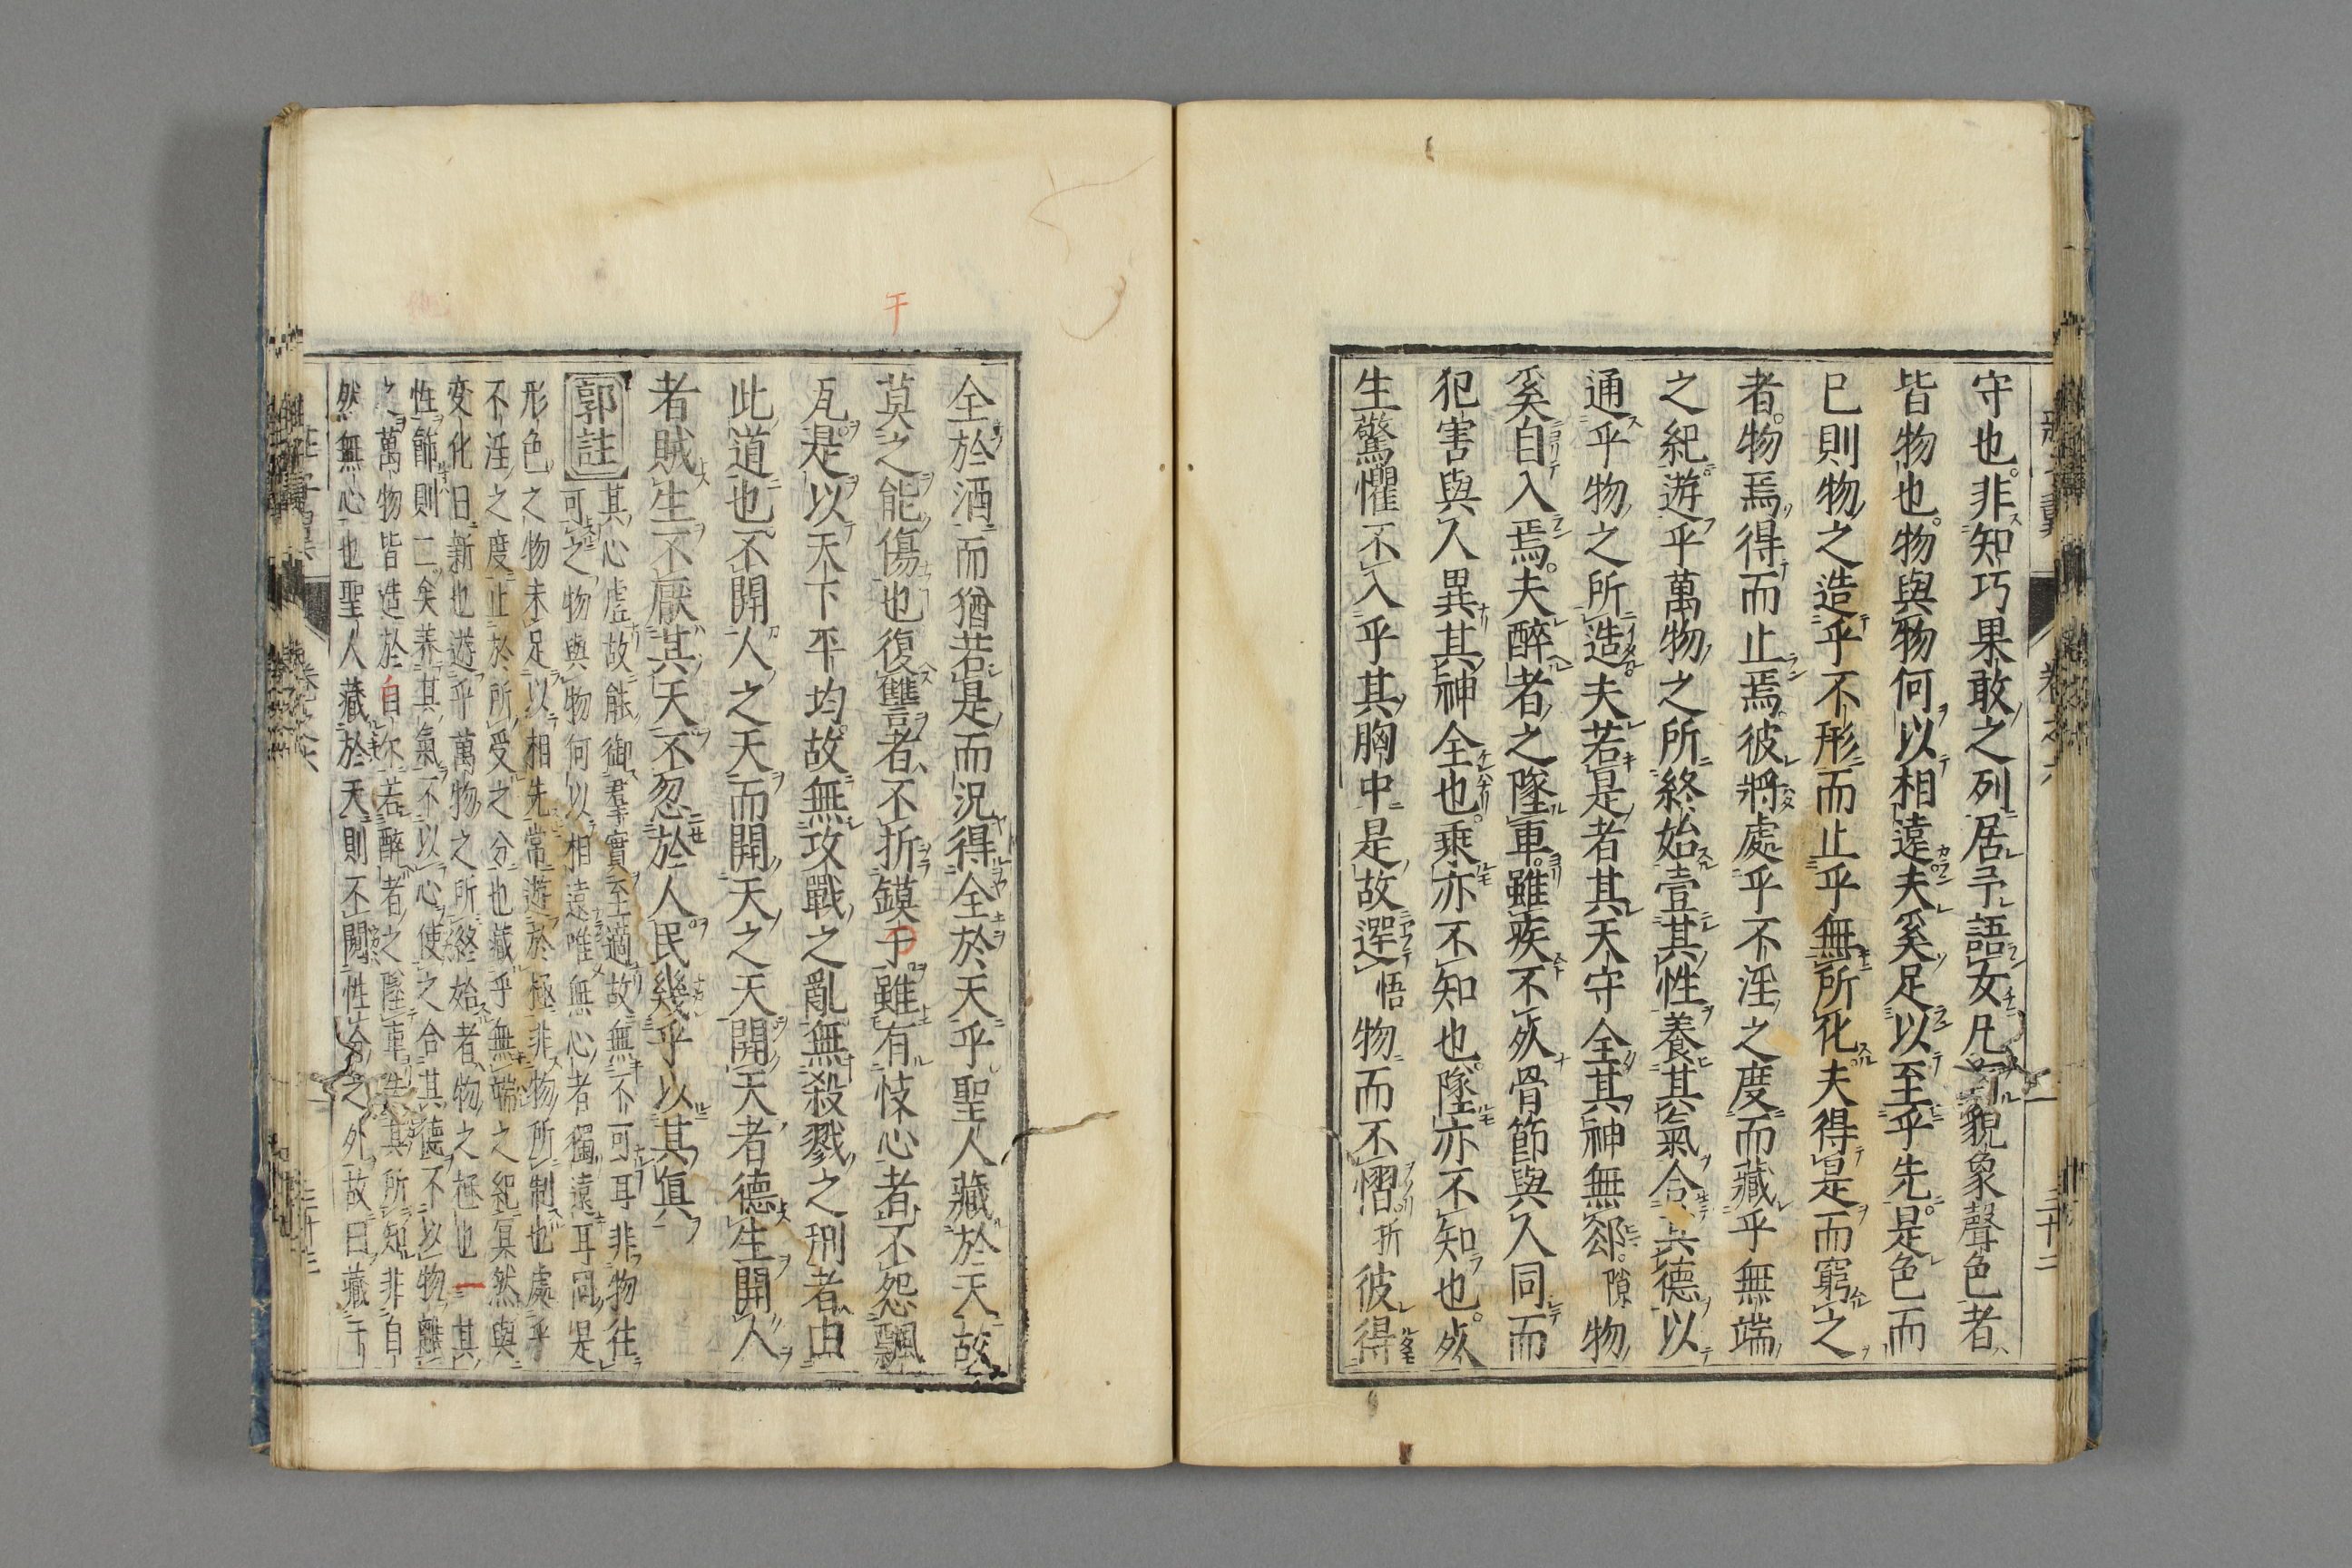 守也。非知巧果敢之列居予語女凡有貌象聲色者
皆物也。物與物何以相遠夫奚足以至乎先。是色而
已則物之造乎不形而止乎無所化夫得是而窮之
者。物焉得而止焉彼將處乎不淫之度而藏乎無端
之紀遊乎萬物之所終始壹其性養其氣合其德以
通乎物之所造夫若是者其天守全其神無郤。隙物
奚自入焉。夫醉者之墜車。雖疾不死骨節與人同而
犯害與人異其神全也。乘亦不知也。墜亦不知也。死
生驚懼不入乎其胸中是故遻悟物而不慴。折彼得
全於酒而猶若是而況得全於天乎聖人藏於天故
莫之能傷也復讐者不折鏌干雖有忮心者不怨飄
瓦是以天下平均故無攻戰之亂無殺戮之刑者由
此道也不開人之天而開天之天開天者德生開人
者賊生不厭其天不忽於人民幾乎以其眞
郭註
其心虛故能御羣實至適故無不可耳非物往
可之物與物何以相遠唯無心者獨遠耳同是
形色之物未足以相先常遊於極非物所制也處乎
不淫之度止於所受之分也藏乎無端之紀冥然與
変化日新也遊乎萬物之所終始者物之極也一其
性飾則二矣養其氣不以心使之合其德不以物離
之萬物皆造於自尓若醉者之墜車失其所知非自
然無心也聖人藏於天則不闚性分之外故曰藏干
干
卷之六
三十二